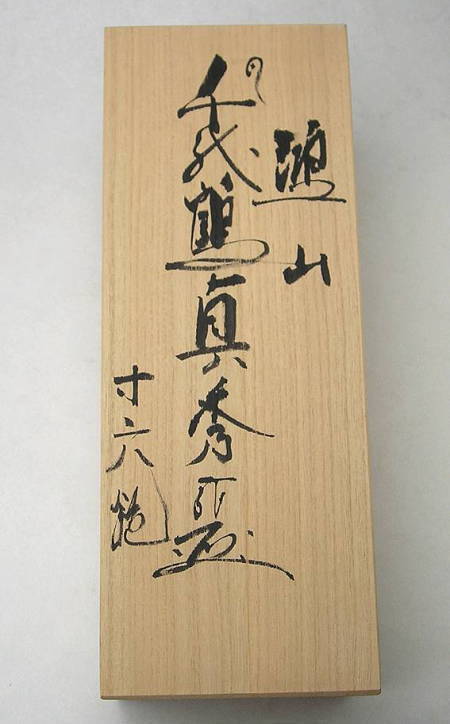 山
千代鶴貞秀
寸六鉋